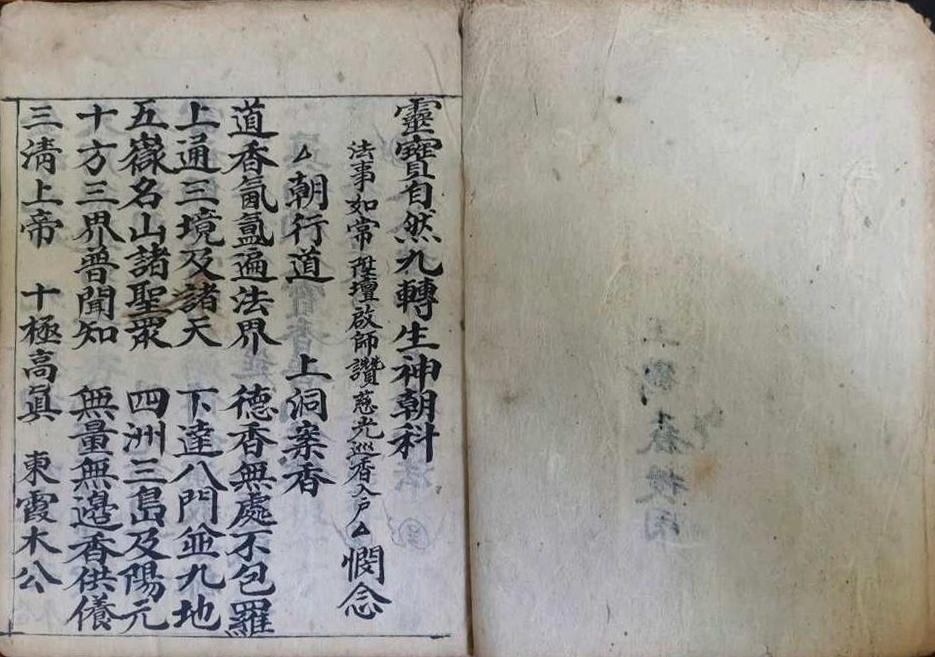 靈寶自然九轉生神朝科
法事如常陞壇啟師讚慈光巡香入戶△憫念
△朝行道　上洞案香
道香氤氳遍法界　德香無處不包羅
上通三境及諸天　下達八門並九地
五嶽名山諸聖眾　四洲三島及陽元
十方三界普聞知　無量無邊香供養
三清上帝　十極高真　東霞木公